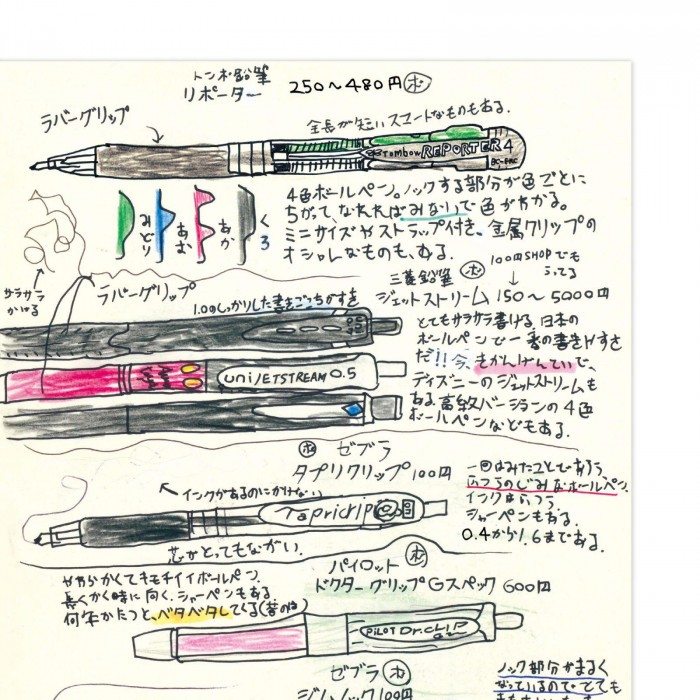 トンボ鉛筆
リポーター 250〜480円 ボ
ラバーグリップ
全長が短いスマートなものもある。
Tombow REPORTER 4
BC-FRC
4色ボールペン。ノックする部分が色ごとに
ちがって、なれればみないで色がわかる。
ミニサイズやストラップ付き、金属クリップの
オシャレなものも、ある。
みどり
あお
あか
くろ
100円SHOPでも
うってる
三菱鉛筆 ボ
ジェットストリーム 150〜5000円
サラサラ
かける
ラバーグリップ
1.0のしっかりした書きごこち
とてもサラサラ書ける、日本の
ボールペンで一番の書きやすさ
だ!! 今、きかんげんていで、
ディズニーのジェットストリームも
ある。高級バージョンの4色
ボールペンなどもある。
uni/JETSTREAM 0.5
ボ ゼブラ
タプリクリップ 100円
インクがあるのにかけない
Tapriclip
一回はみたことであろう
ふつうのじみなボールペン。
インクはふつう。
シャーペンもある。
0.4から1.6まである。
芯がとってもながい。
パイロット ボ
ドクターグリップGスペック 600円
やわらかくてキモチイイボールペン。
長くかく時に向く。シャーペンもある。
何年かたつと、ベタベタしてくる(昔のは)
PILOT Dr.GRIP
ゼブラ ボ
ジムノック 100円
ノック部分がまるく
なっているので、とても